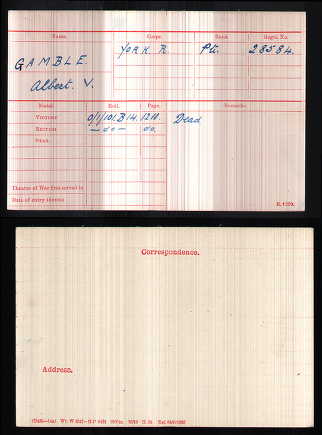 Name. Corps. Rank. Regtl. No.
GAMBLE. York. R. Pte. 28584.
Albert. V.
Medal. Roll. Page. Remarks.
Victory 0/1/101.B14. 1210. Dead
British —do— do.
Star
Theatre of War first served in
Date of entry therein
K. 1380.
Correspondence.
Address.